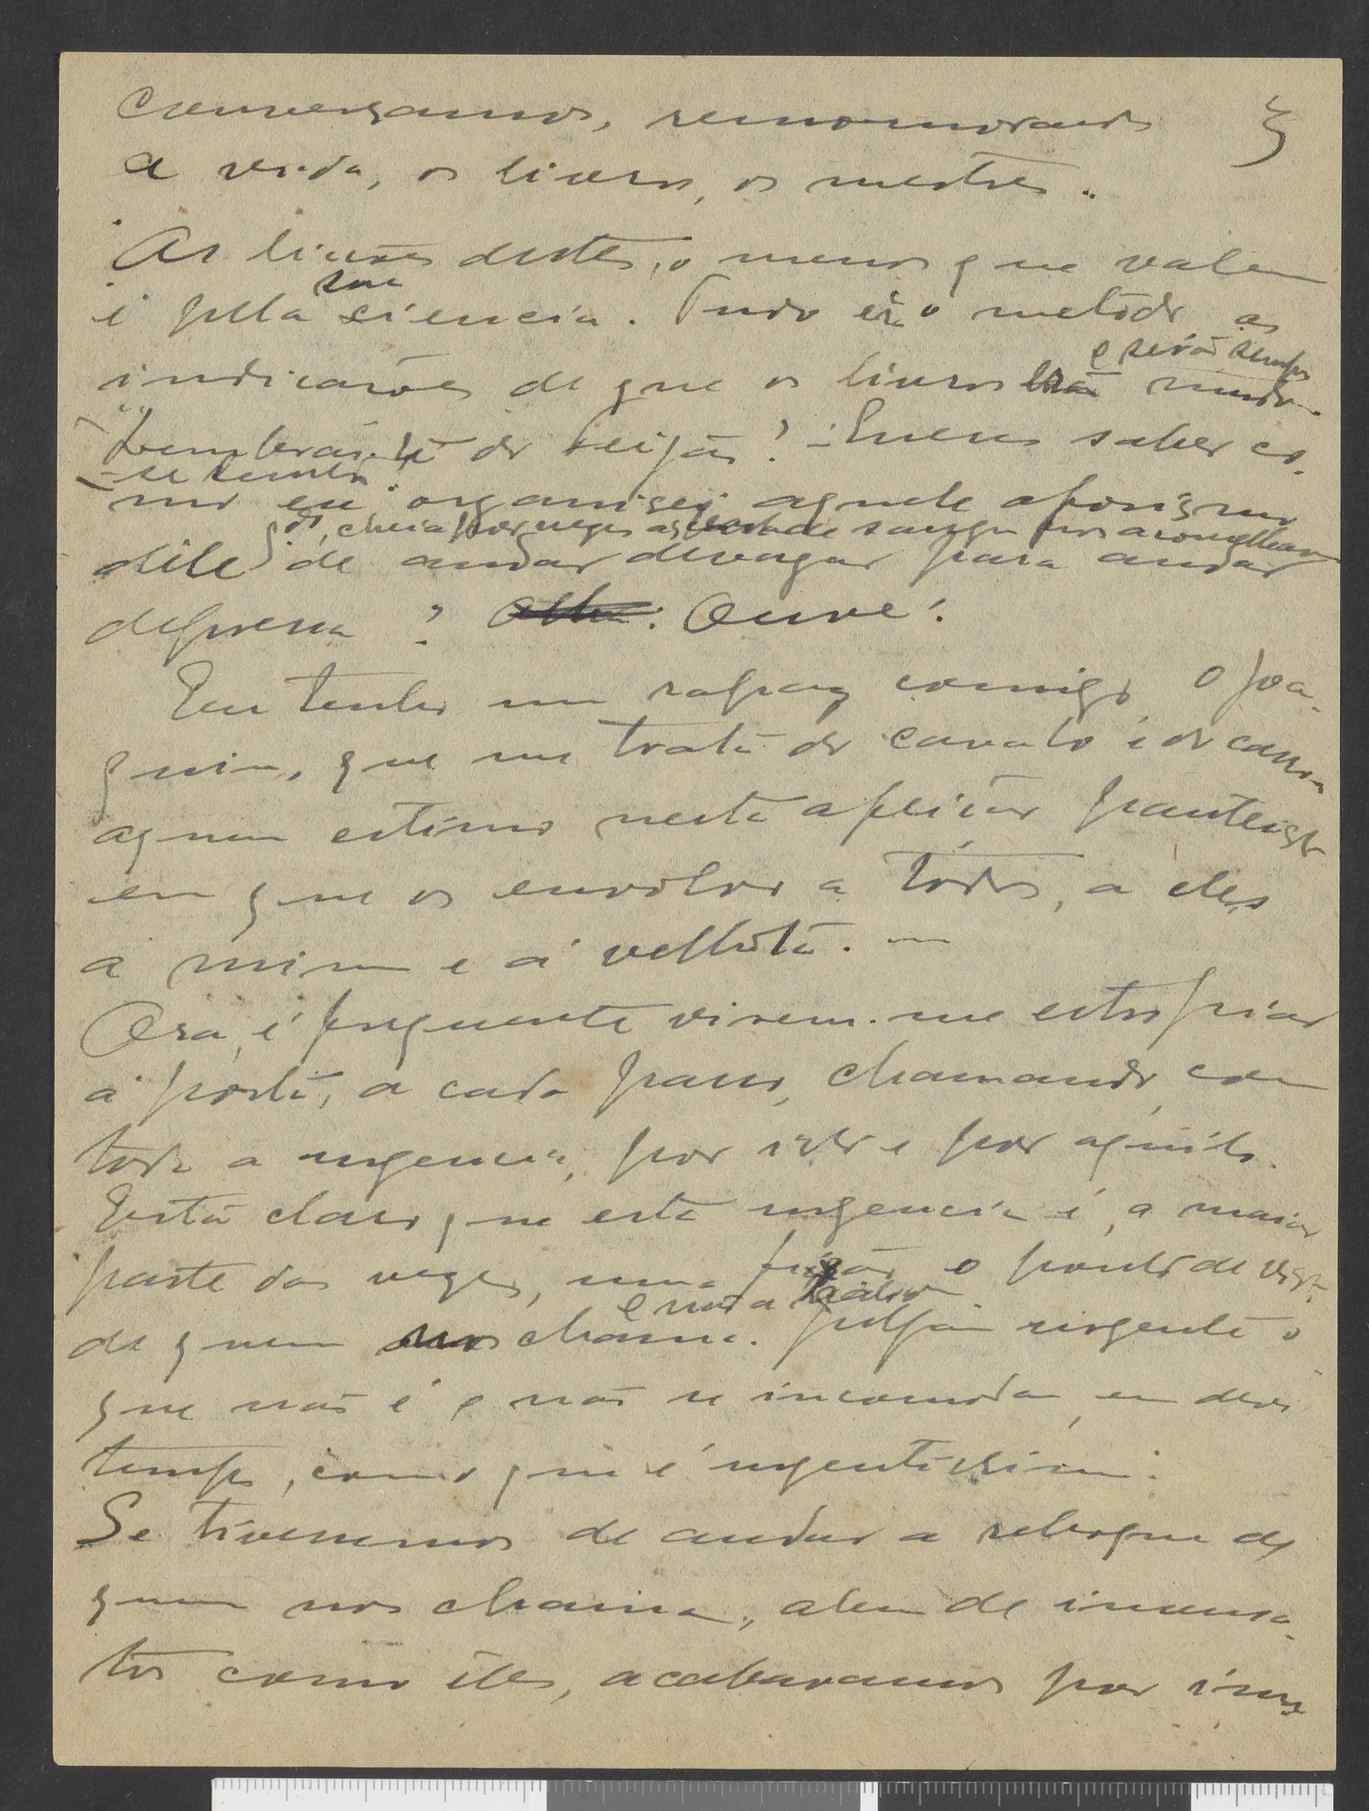 Conversamos, rememorando
a vida, os livros, os mestres.
As lições destes, o menos que valem
é pela sua ciencia. Tudo é o metodo as
indicações de que os livros e serão sempre mudos.
Lembras-te do Feijão? - Queres saber co-
mo eu organisei aquele aforismo
dele de andar devagar para andar
depressa? Ouve!
Eu tenho um rapaz comigo o Joa-
quim, que me trata do cavalo e da casa
a quem estimo nesta afeição panteista
em que os envolvo a todos, a eles
a mim e á velhota.
Ora, é frequente virem-me
á porta, a cada passo, chamando, com
toda a urgencia, por isto e por aquilo.
Está claro que esta urgencia é, a maior
parte das vezes, uma o ponto de vista
de quem nos chama. e não a Julgam urgente o
que não é e não se incomodam, em devido
tempo, com o que é urgentissimo.
Se tivessemos de andar a reboque de
quem nos chama, alem de insensa-
tos como eles, acabavamos por